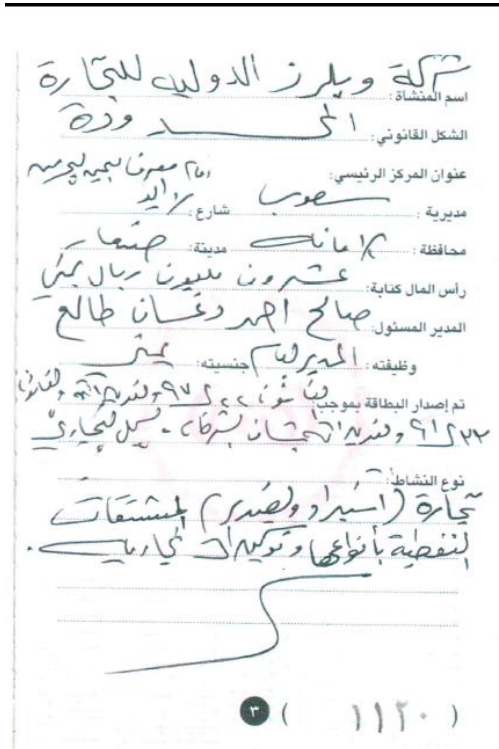 اسم المنشأة: شركة ويلرز الدوليه للتجارة
الشكل القانوني: المحدودة
عنوان المركز الرئيسي: امام
مديرية: شعوب شارع: زايد
محافظة: الامانه مدينة: صنعاء
رأس المال كتابة: عشرون مليون ريال يمني
المدير المسئول: صالح احمد دغسان طالع
وظيفته: المدير العام جنسيته: يمني
تم إصدار البطاقة بموجب: ٢٢ لـ ٩٧
٢٣ لـ ٩١ بشان التجاري
نوع النشاط:
تجارة (استيراد وتصدير) المشتقات
النفطية بأنواعها وتوكيلات تجارية.
٣ ( ١١٢٠ )